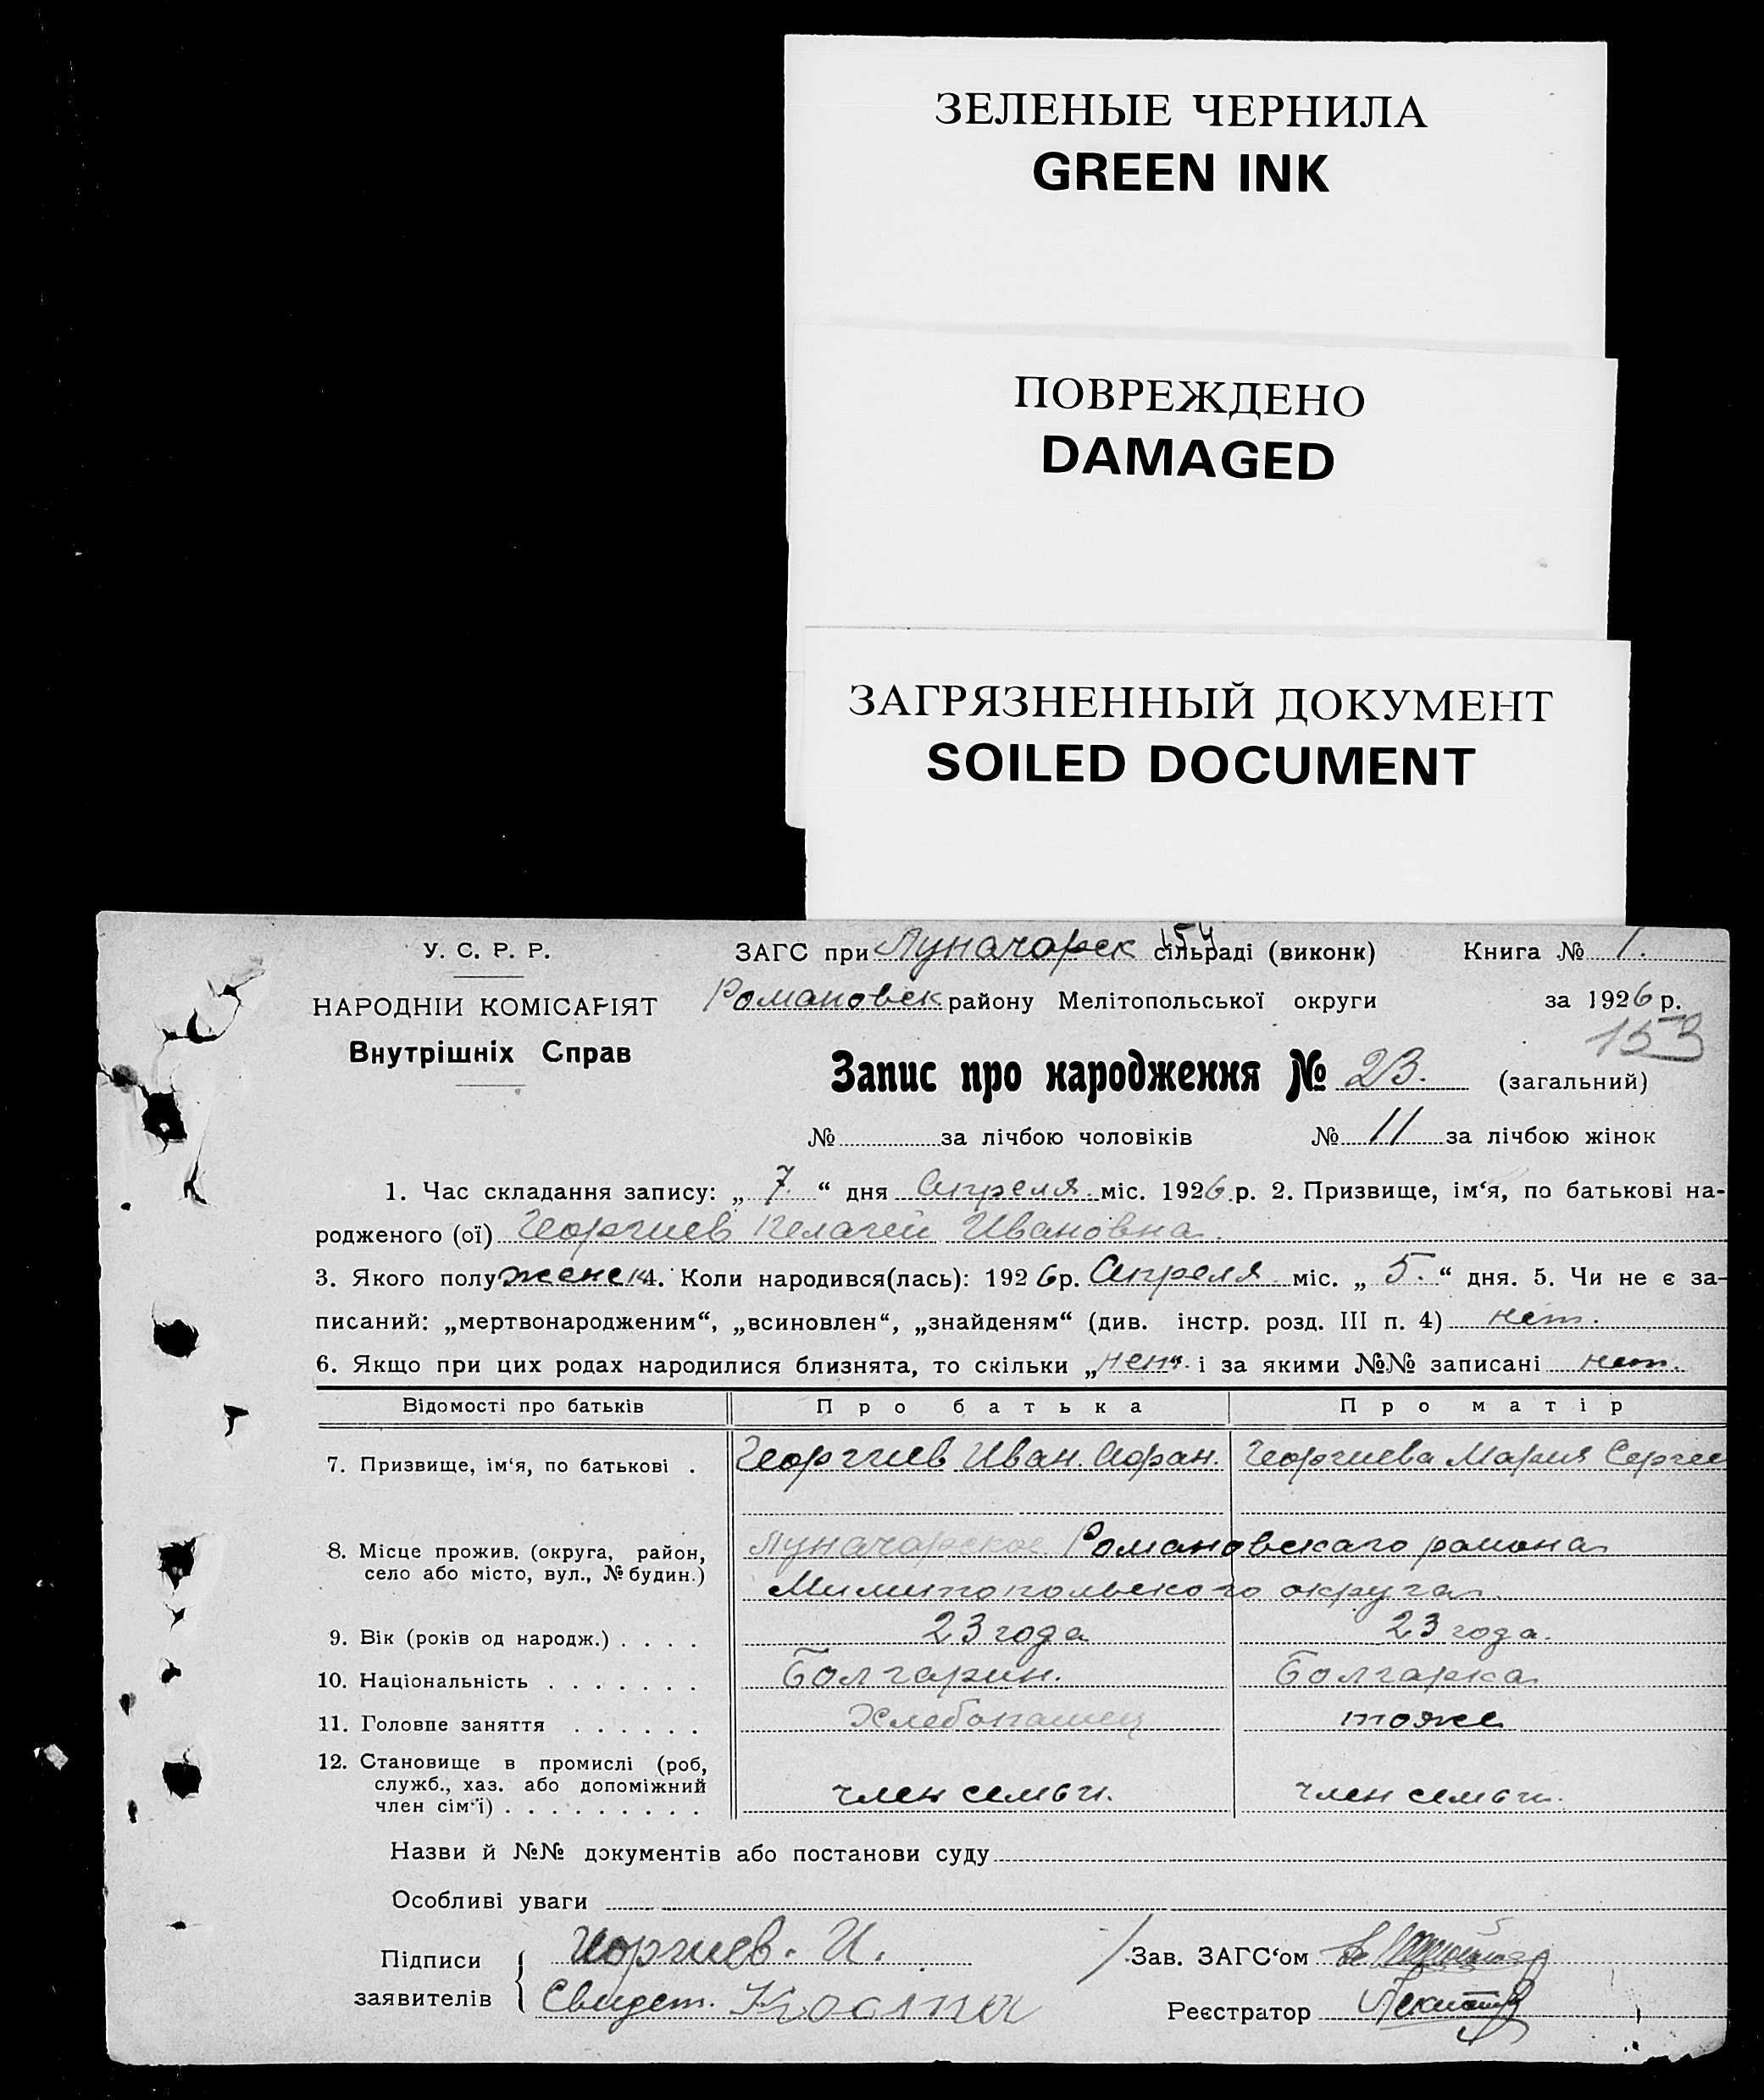 ЗЕЛЕНЫЕ ЧЕРНИЛА
GREEN INK
ПОВРЕЖДЕНО
DAMAGED
ЗАГРЯЗНЕННЫЙ ДОКУМЕНТ
SOILED DOCUMENT
154
У. С. Р. Р. ЗАГС при Луначарск сільраді (виконк) Книга № 1.
НАРОДНІЙ КОМІСАРІЯТ Романовск району Мелітопольської округи за 1926 р.
153
Внутрішніх Справ Запис про народження № 23. (загальний)
№ за лічбою чоловіків № 11 за лічбою жінок
1. Час складання запису: „ 7. “ дня Апреля міс. 1926 р. 2. Призвище, ім‘я, по батькові на-
родженого (ої) Георгиев Пелагей Ивановна.
3. Якого полу женск 4. Коли народився(лась): 1926 р. Апреля міс. „ 5. “ дня. 5. Чи не є за-
писаний: „мертвонародженим“, „всиновлен“, „знайденям“ (див. інстр. розд. III п. 4) нет.
6. Якщо при цих родах народилися близнята, то скільки „нет“ і за якими №№ записані нет.
Відомості про батьків Про батька Про матір
7. Призвище, ім‘я, по батькові . Георгиев Иван. Афан. Георгиева Мария Сергее
8. Місце прожив. (округа, район, Луначарское Романовскаго района
село або місто, вул., № будин.) Милитопольского округа.
9. Вік (років од народж.) . . . . 23 года 23 года.
10. Національність . . . . . . . Болгарин. Болгарка
11. Головне заняття . . . . . . Хлебопашец тоже
12. Становище в промислі (роб,
служб., хаз. або допоміжний член семьи. член семьи.
член сім‘ї) . . . . . . . . .
Назви й №№ документів або постанови суду
Особливі уваги
Підписи Георгиев. И. Зав. ЗАГС‘ом
заявителів Свидет. Реєстратор